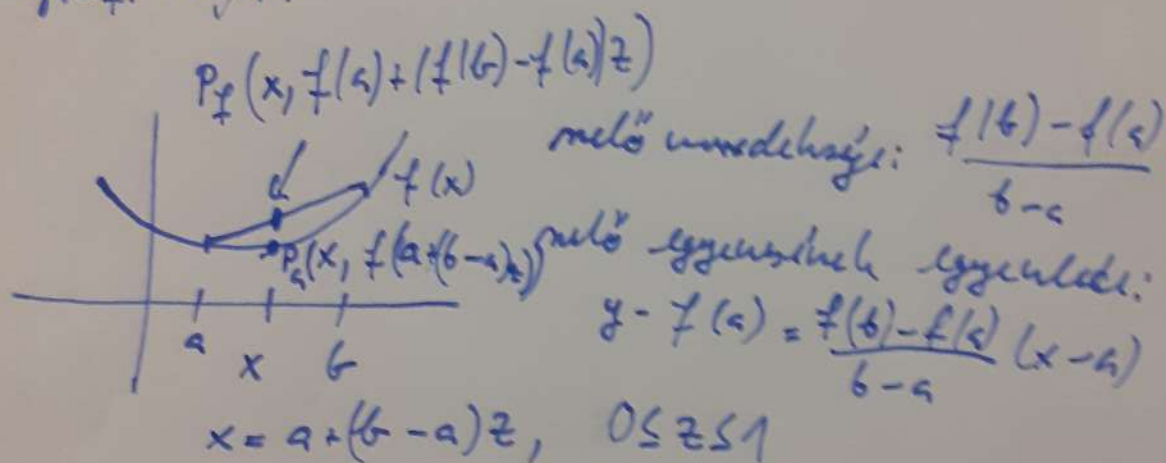 P_f (x, f(a) + (f(b) - f(a))z)
szelő meredeksége: \frac{f(b) - f(a)}{b - a}
f(x)
P_a(x, f(a+(b-a)z))
szelő egyenesének egyenlete:
y - f(a) = \frac{f(b) - f(a)}{b - a} (x - a)
a x b
x = a + (b - a)z, 0 ≤ z ≤ 1